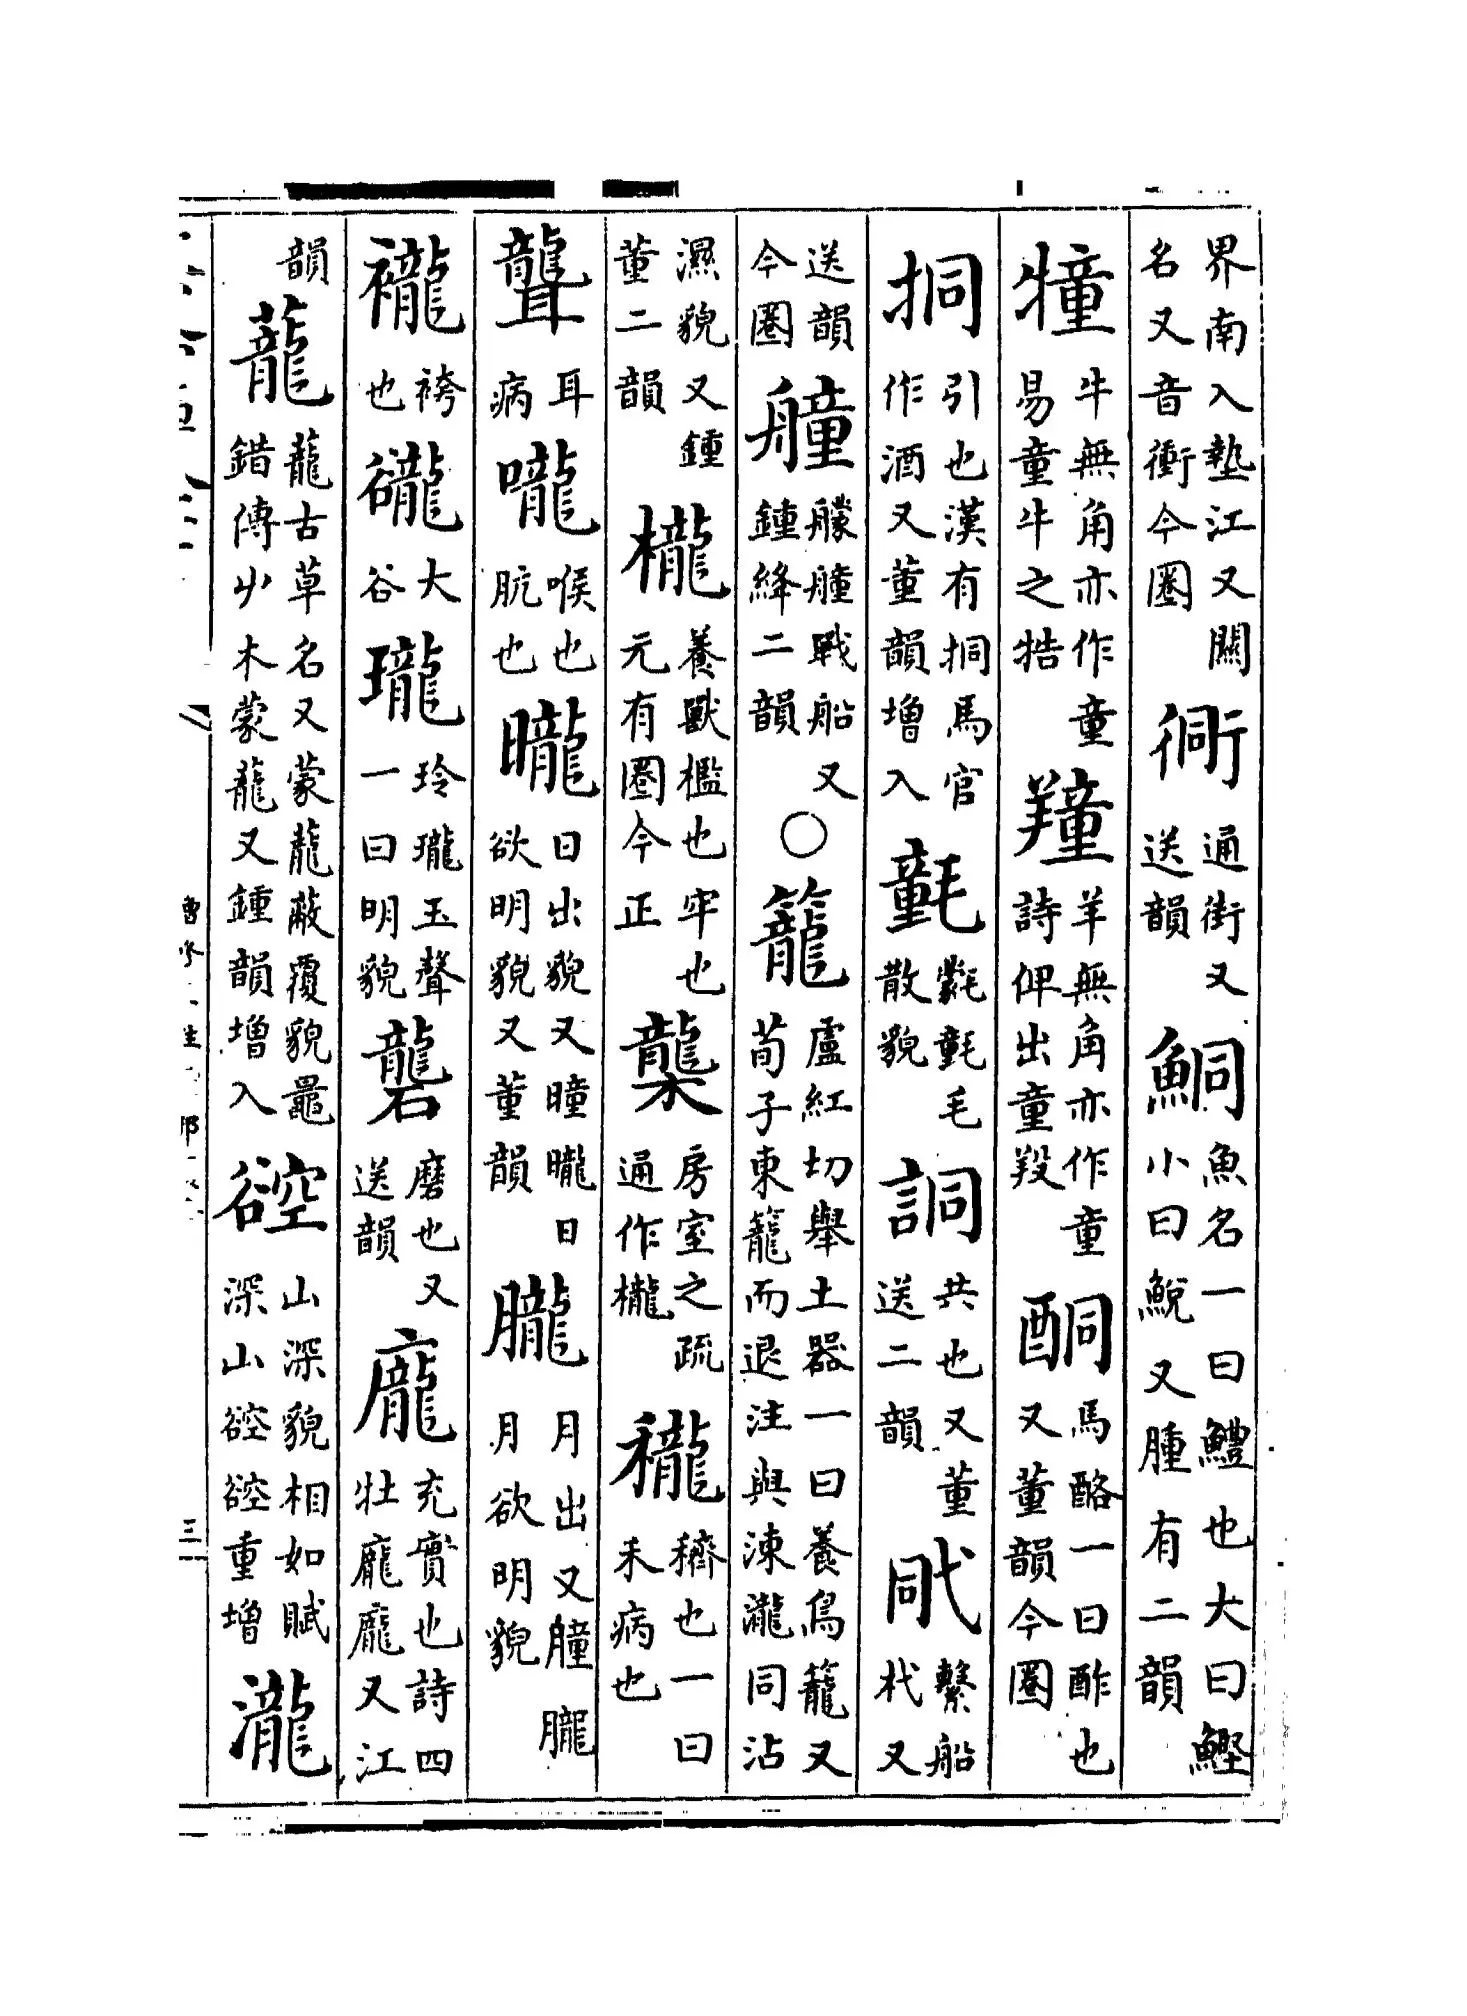 界南入墊江又關名又音衝今圈 衕 通街又送韻 鮦 魚名一曰鱧也大曰鰹小曰鮵又腫有二韻
犝 牛無角亦作童易童牛之牿 羵 羊無角亦作童詩俾出童羖 酮 馬酪一曰酢也又董韻今圈
挏 引也漢有挏馬官作酒又董韻增入 氃 氋氃毛散貌 詷 共也又董送二韻 戙 繫船杙又
送韻今圈 艟 艨艟戰船又鍾絳二韻 ○ 籠 盧紅切舉土器一曰養鳥籠又荀子東籠而退注與涷瀧同沾
濕貌又鍾董二韻 櫳 養獸檻也牢也元有圈今正 襱 房室之疏通作櫳 穲 穧也一曰禾病也
聾 耳病 嚨 喉也肮也 曨 日出貌又曈曨日欲明貌又董韻 朧 月出又朣朧月欲明貌
襱 袴也 谾 大谷 瓏 玲瓏玉聲一曰明貌 礱 磨也又送韻 龐 充實也詩四牡龐龐又江
韻 蘢 蘢古草名又蒙蘢蔽覆貌鼂錯傳屮木蒙蘢又鍾韻增入 谾 山深貌相如賦深山谾谾重增 瀧